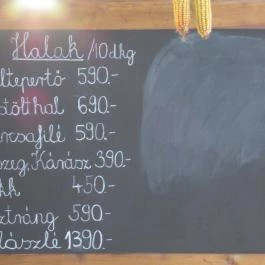 Halak /10dkg
ltepertő 590.-
tölthal 690.-
rcsafilé 590.-
szeg, Kárász 390.-
kk 450.-
ztráng 590.-
lászlé 1390.-